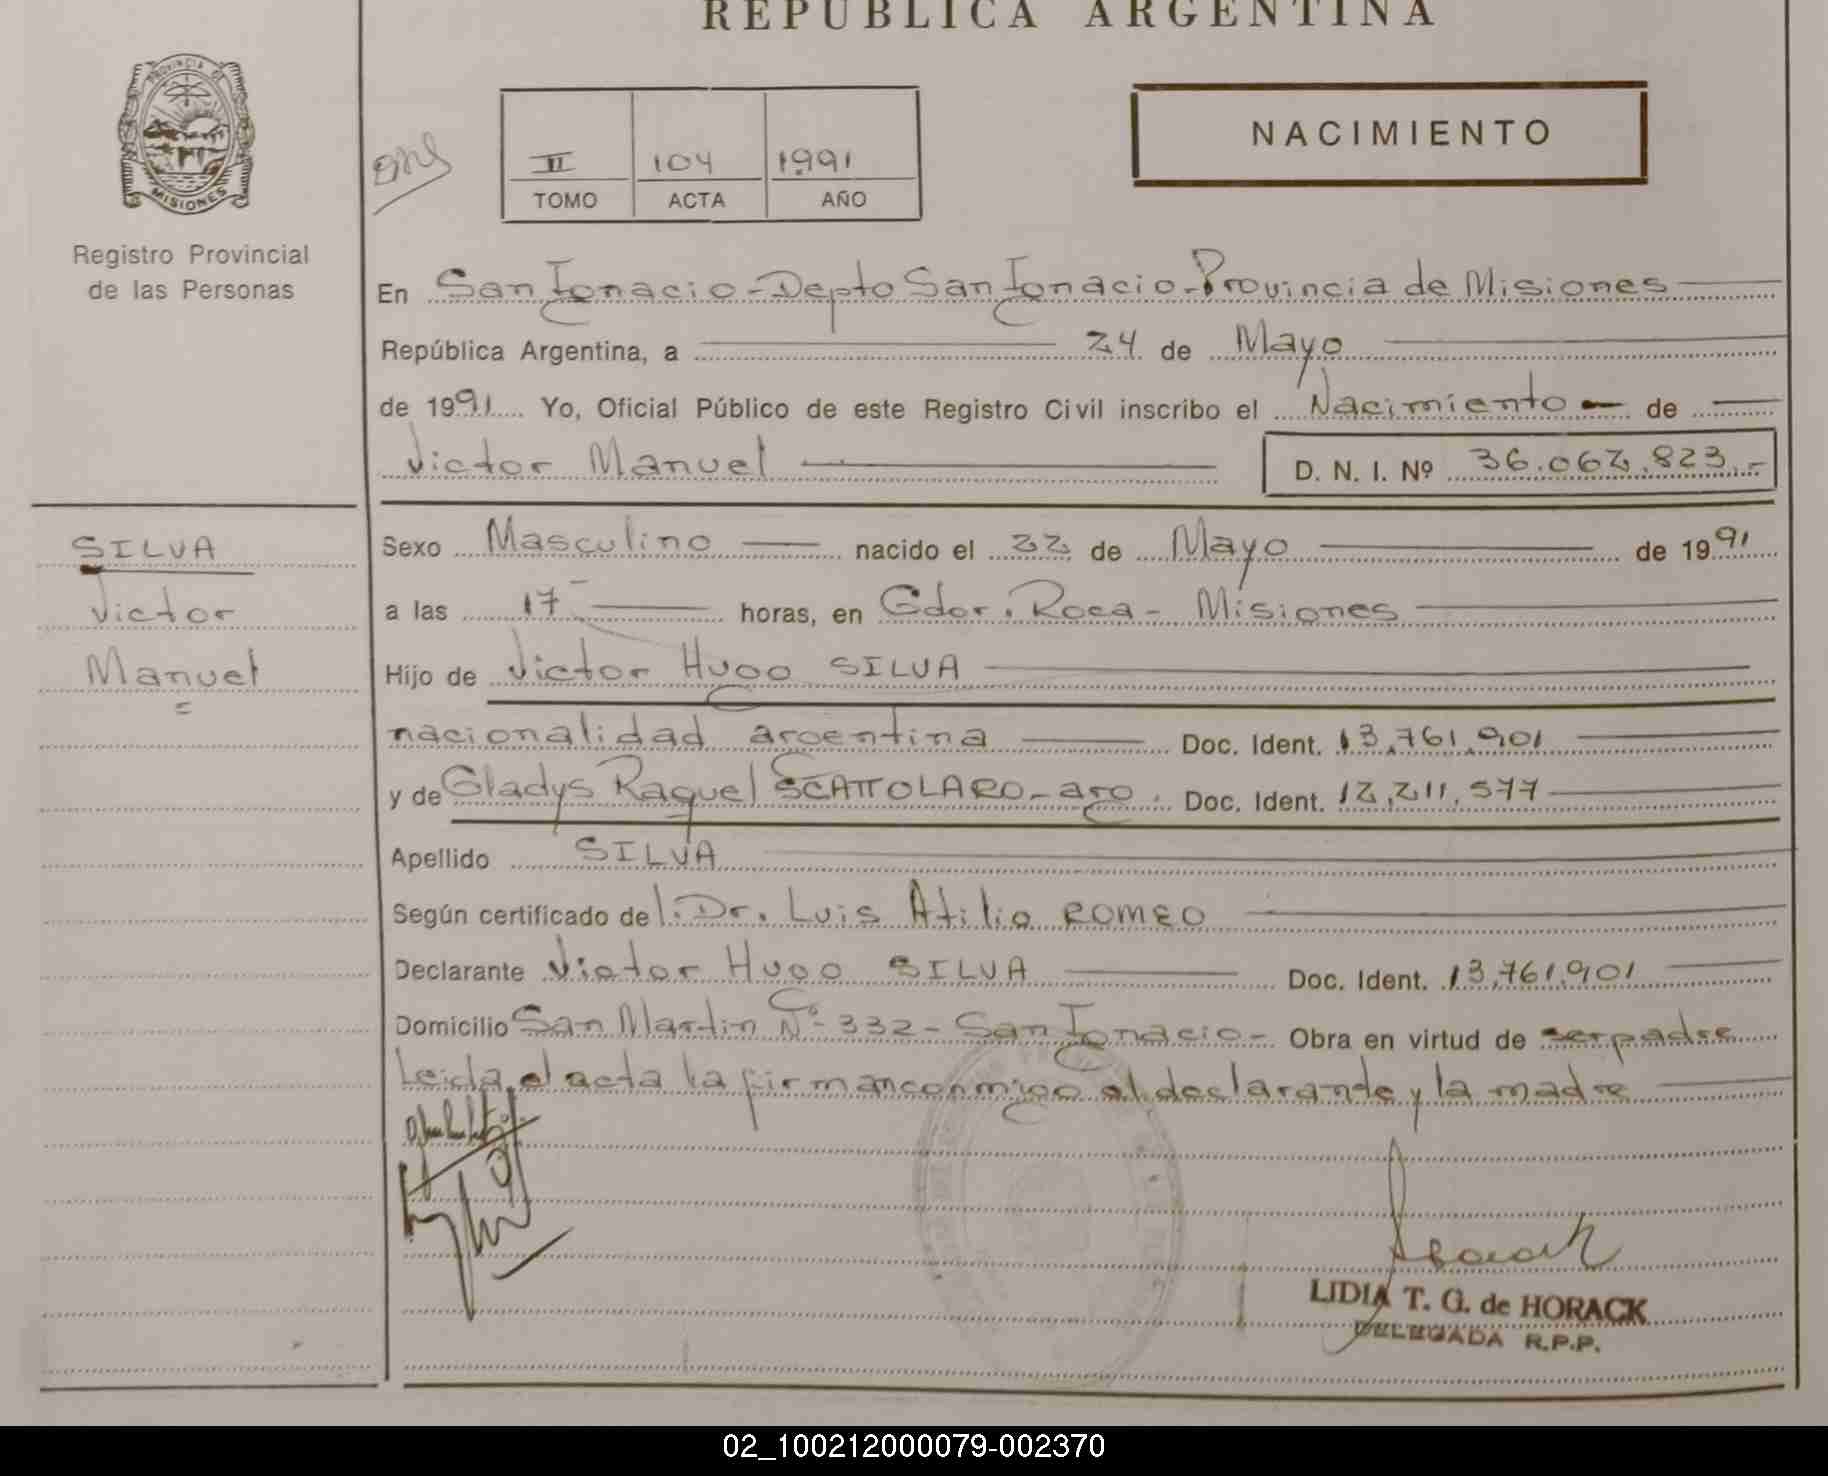 REPUBLICA ARGENTINA
PROVINCIA DE
MISIONES
Registro Provincial
de las Personas
II 104 1991
TOMO ACTA AÑO
NACIMIENTO
En San Ignacio - Depto San Ignacio - Provincia de Misiones
República Argentina, a 24 de Mayo
de 1991 Yo, Oficial Público de este Registro Civil inscribo el Nacimiento - de
Victor Manuel D. N. I. Nº 36.062.823.-
SILVA
Victor
Manuel
Sexo Masculino nacido el 22 de Mayo de 1991
a las 17 horas, en Gdor. Roca - Misiones
Hijo de Victor Hugo SILVA
nacionalidad argentina Doc. Ident. 13.761.901
y de Gladys Raquel SCATTOLARO - arg. Doc. Ident. 12.211.577
Apellido SILVA
Según certificado del. Dr. Luis Atilio ROMEO
Declarante Victor Hugo SILVA Doc. Ident. 13.761.901
Domicilio San Martin Nº - 332 - San Ignacio - Obra en virtud de ser padre
Leida el acta la firman conmigo el declarante y la madre
LIDIA T. G. de HORACK
DELEGADA R.P.P.
02_100212000079-002370